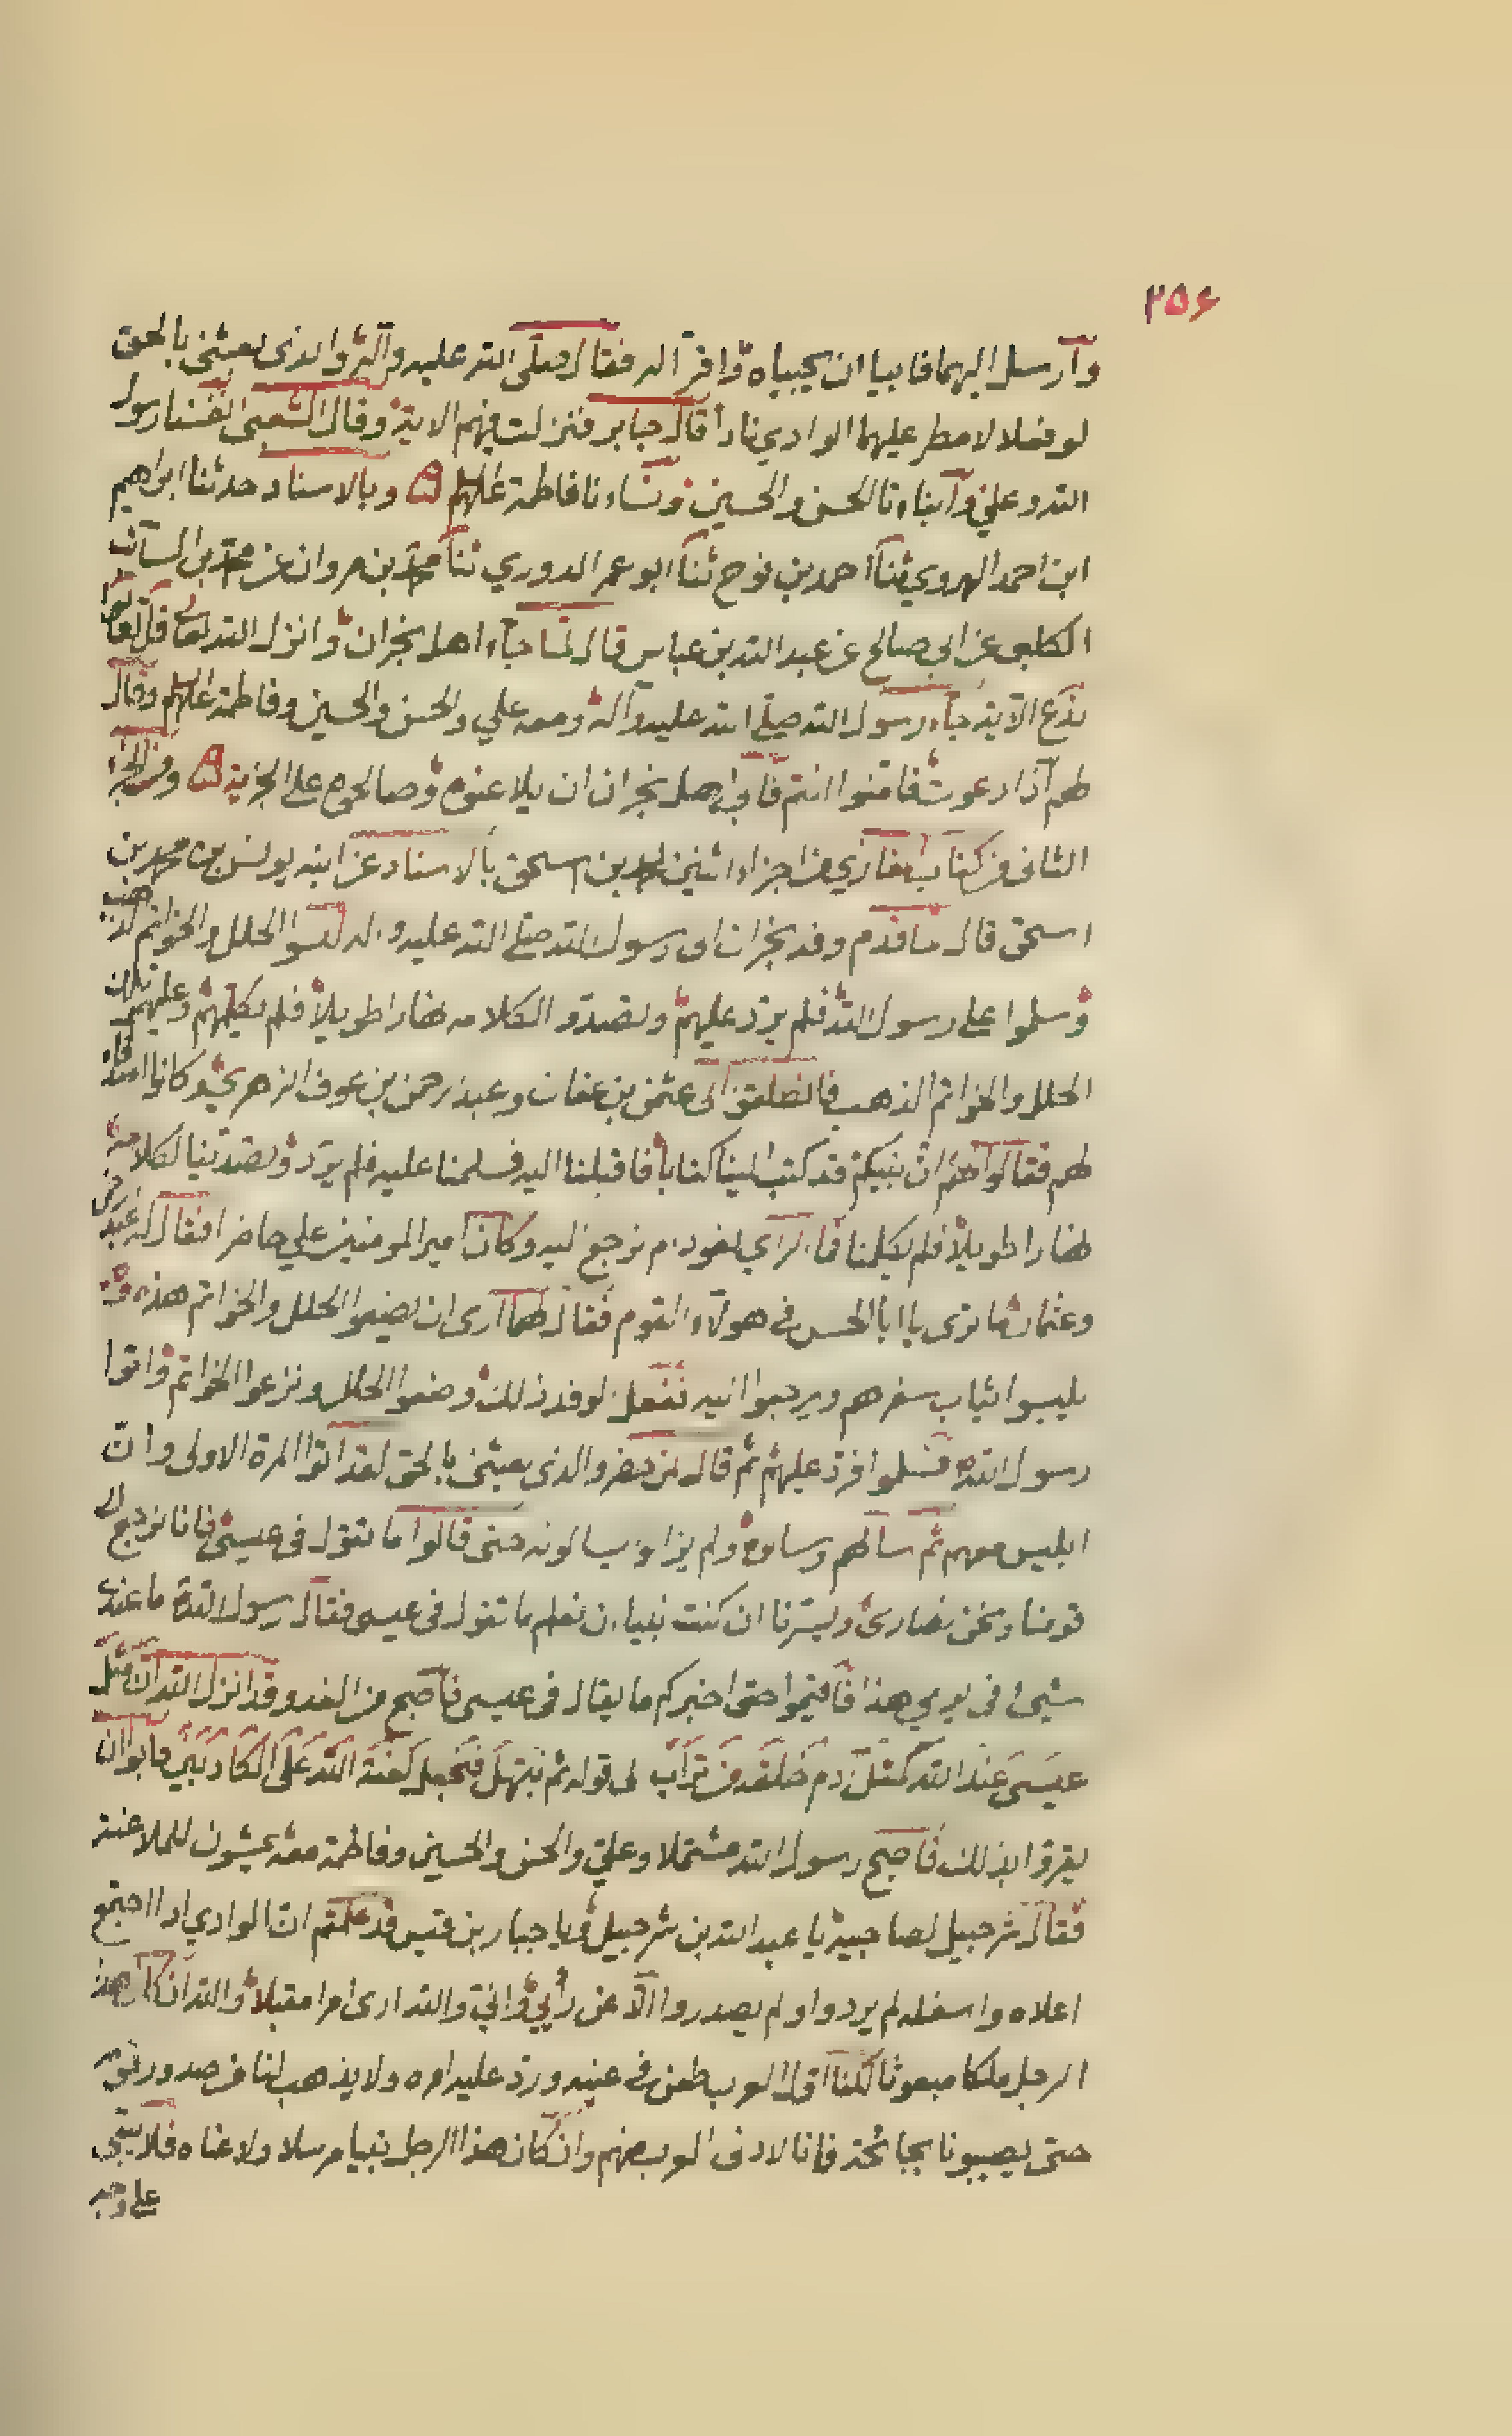 ٢٥۶
وأرسل اليهما فابيا ان يجيباه واقرا له فقال صلى الله عليه وآله والذى بعثنى بالحق
لو فعلا لامطر عليهما الوادي نارا قال جابر فنزلت فيهم الاية وقال الشعبى انفسنا رسول
الله وعلي وابناءنا الحسن والحسين ونساءنا فاطمة عليهم وبالاسناد حدثنا ابراهيم
ابن احمد الهروي ثنا احمد بن نوح ثنا ابو عمر الدوري ثنا محمد بن مروان عن محمد بن السائب
الكلبى عن ابى صالح عن عبد الله بن عباس قال لما جاء اهل نجران وانزل الله تعالى قل تعالوا
ندع الآية جاء رسول الله صلى الله عليه وآله ومعه علي والحسن والحسين وفاطمة عليهم وقال
لهم اذا دعوت فامنوا انتم فابى اهل نجران ان يلاعنوه وصالحوه على الجزية ومن الجزء
الثانى من كتاب المغازي من اجزاء اثنين بن اسحق بالاسناد عن ابنه يونس بن محمد بن
اسحق قال ما قدم وفد نجران الى رسول الله صلى الله عليه واله لبسوا الحلل والخواتم الذهب
وسلموا على رسول الله فلم يرد عليهم وتصدوا لكلامه نهارا طويلا فلم يكلمهم وعليهم تلك
الحلل والخواتم الذهب فانطلقوا الى عثمن بن عفان وعبد الرحمن بن عوف الزهري وكانوا
لهم فقالوا لهم ان نبيكم قد كتب الينا كتابا فاقبلنا اليه فسلمنا عليه فلم يرد وتصدينا لكلامه
نهارا طويلا فلم يكلمنا فما الراي نعود ام نرجع اليه وكان امير المومنين علي حاضرا فقال له عبد الرحمن
وعثمان ما ترى يا ابا الحسن في هولاء القوم فقال لهما ارى ان يضعوا الحلل والخواتم هذه وان
يلبسوا ثياب سفرهم ويرجعوا اليه ففعل الوفد ذلك وضعوا الحلل ونزعوا الخواتم واتوا
رسول الله فسلموا فرد عليهم ثم قال لمن حضر والذى بعثنى بالحق لقد اتوا المرة الاولى وان
ابليس معهم ثم سالهم وسالوه ولم يزالوا يسالونه حتى قالوا ما تقول فى عيسى فانا نرجع الى
قومنا ونحن نصارى ويسرنا ان كنت نبيا ان نعلم ما تقول فى عيسى فقال رسول الله ما عندى
شيئ فى يومي هذا فاقيموا حتى اخبركم ما يقال فى عيسى فاصبح من الغد وقد انزل الله ان مثل
عيسى عند الله كمثل ادم خلقه من تراب الى قوله ثم نبتهل فنجعل لعنة الله على الكاذبين فابوا ان
يقروا بذلك فاصبح رسول الله مشتملا وعلي والحسن والحسين وفاطمة معه يمشون للملاعنة
فقال شرحبيل لصاحبيه يا عبد الله بن شرحبيل ويا جبار بن قيس قد علمتم ان الوادي اذا اجتمع
اعلاه واسفله لم يردوا ولم يصدروا الا عن رأيى وانى والله ارى امرا مقبلا والله ان كان هذا
الرجل ملكا مبعوثا لكنا اول العرب طعن في عينه ورد عليه امره ولا يذهب لنا من صدور قومه
حتى يصيبونا بجائحة فانا لادنى العرب منهم وان كان هذا الرجل نبيا مرسلا ولاعناه فلا يبقى
على وجه